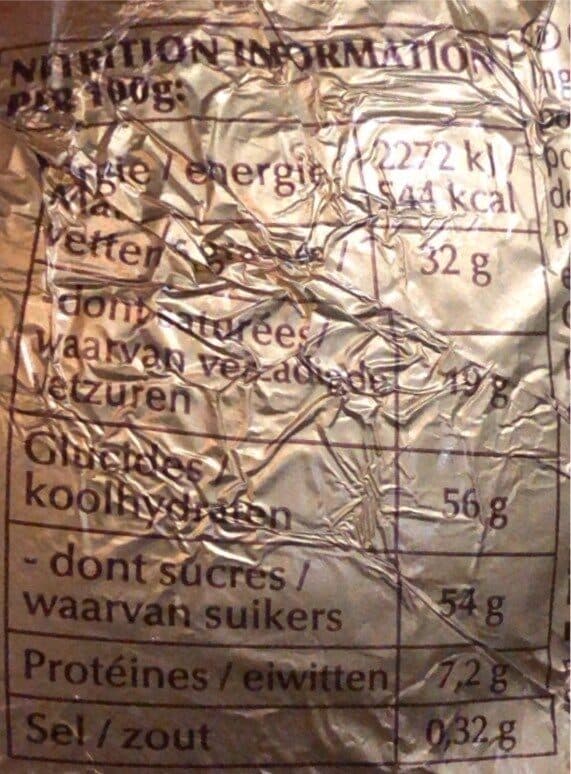 NUTRITION INFORMATION
PER 100g:
energie 2272 kJ /
544 kcal
vetten / 32 g
- dont saturées /
waarvan verzadigde 19 g
vetzuren
Glucides /
koolhydraten 56 g
- dont sucres /
waarvan suikers 54 g
Protéines / eiwitten 7,2 g
Sel / zout 0,32 g